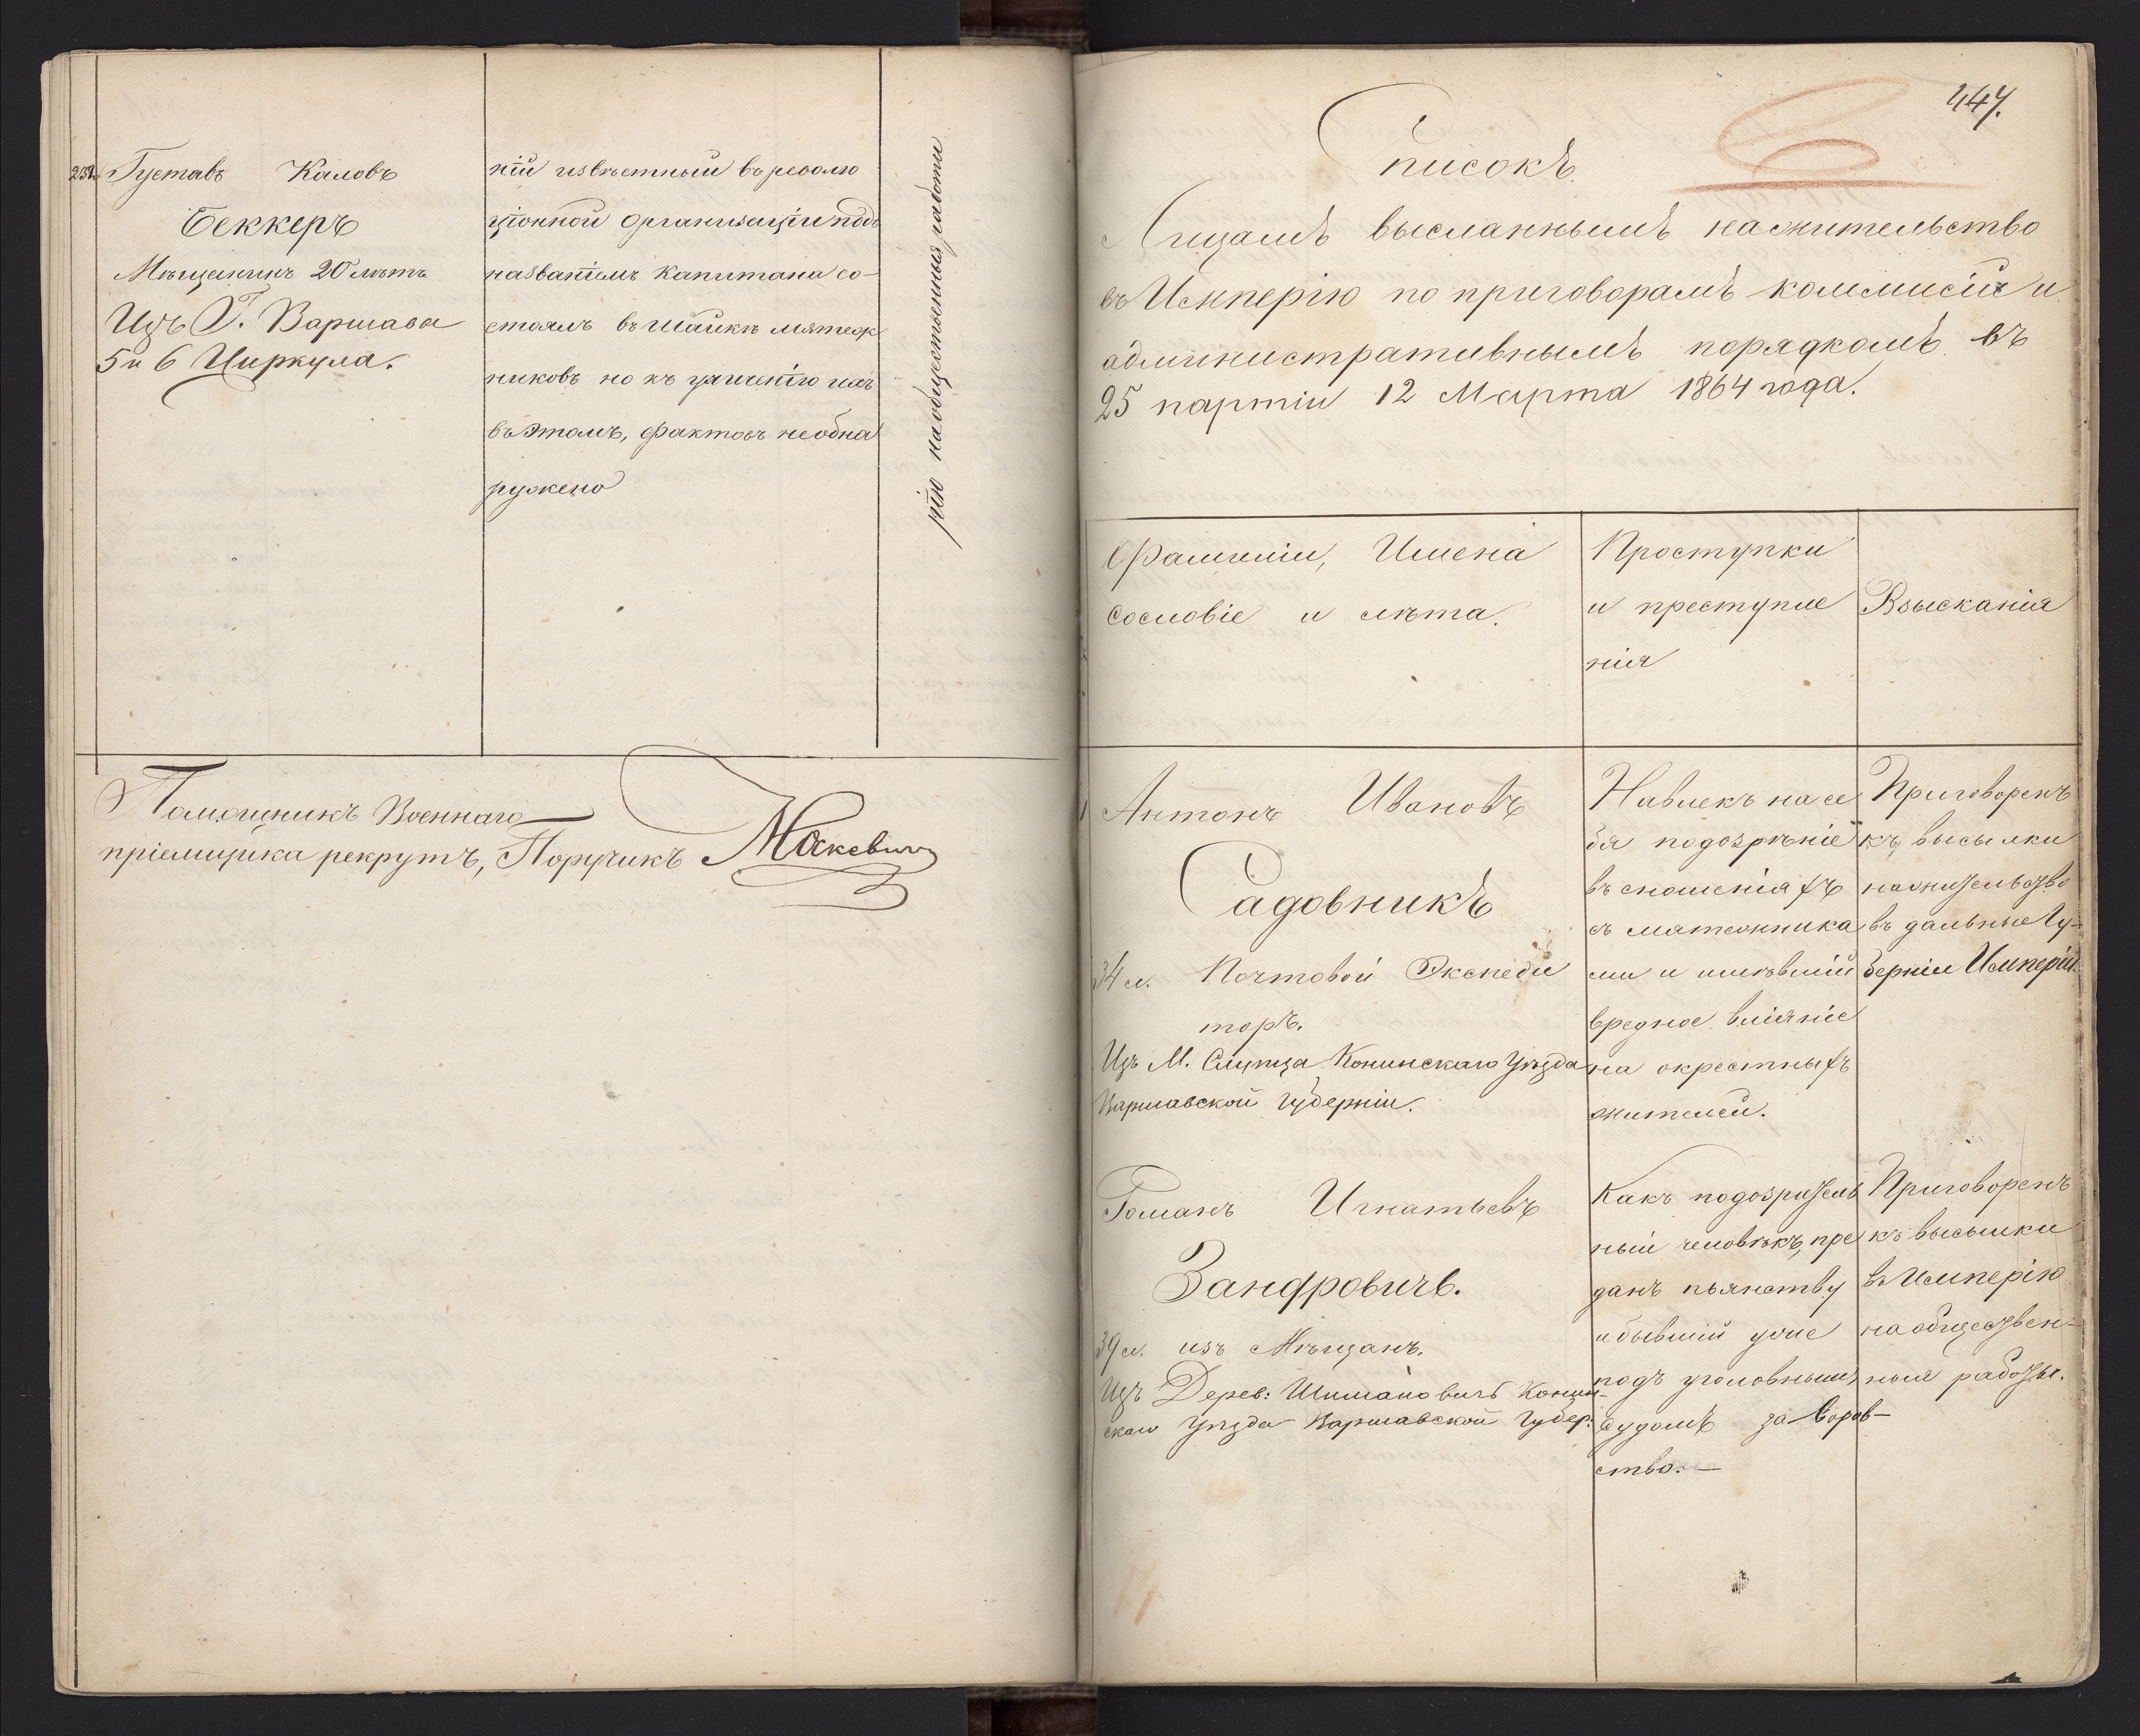 251.
Густавъ Каловъ
Беккеръ
Мѣщанинъ 20 лѣтъ
Изъ Г. Варшава
5 и 6 Циркула.
ній извѣстный въ револю
ціонной организаціи подъ
названіемъ капитана со-
стоялъ въ шайкѣ мятеж
никовъ но къ уличенію его
въ этомъ, фактовъ необна
ружено
рію на общественныя работы
Помощникъ Военнаго
пріемщика рекрутъ, Поручикъ Макевичъ
447.
Списокъ
Лицамъ высланнымъ на жительство
въ Имперію по приговорамъ коммисіи и
административнымъ порядкомъ въ
25 партіи 12 Марта 1864 года.
Фамиліи, Имена
сословіе и лѣта.
Проступки
и преступле
нія
Взысканія
1
Антонъ Ивановъ
Садовникъ
34 л. Почтовой Экспеди
торъ.
Изъ М. Слупца Конинскаго Уѣзда
Варшавской Губерніи.
Навлекъ на се
бя подозрѣніе
въ сношеніяхъ
съ мятежника
ми и имѣвшій
вредное вліяніе
на окрестныхъ
жителей.
Приговоренъ
къ высылки
на жительство
въ дальные Гу-
берніи Имперіи.
Романъ Игнатьевъ
Зандровичъ.
39 л. изъ Мѣщанъ.
Изъ Дерев: Шимановичъ Конин-
скаго Уѣзда Варшавской Губер:
Какъ подозритель
ный человѣкъ, пре
данъ пьянству
и бывшій уже
подъ уголовнымъ
судомъ за воров-
ство.—
Приговоренъ
къ высылки
въ Имперію
на обществен-
ныя работы.